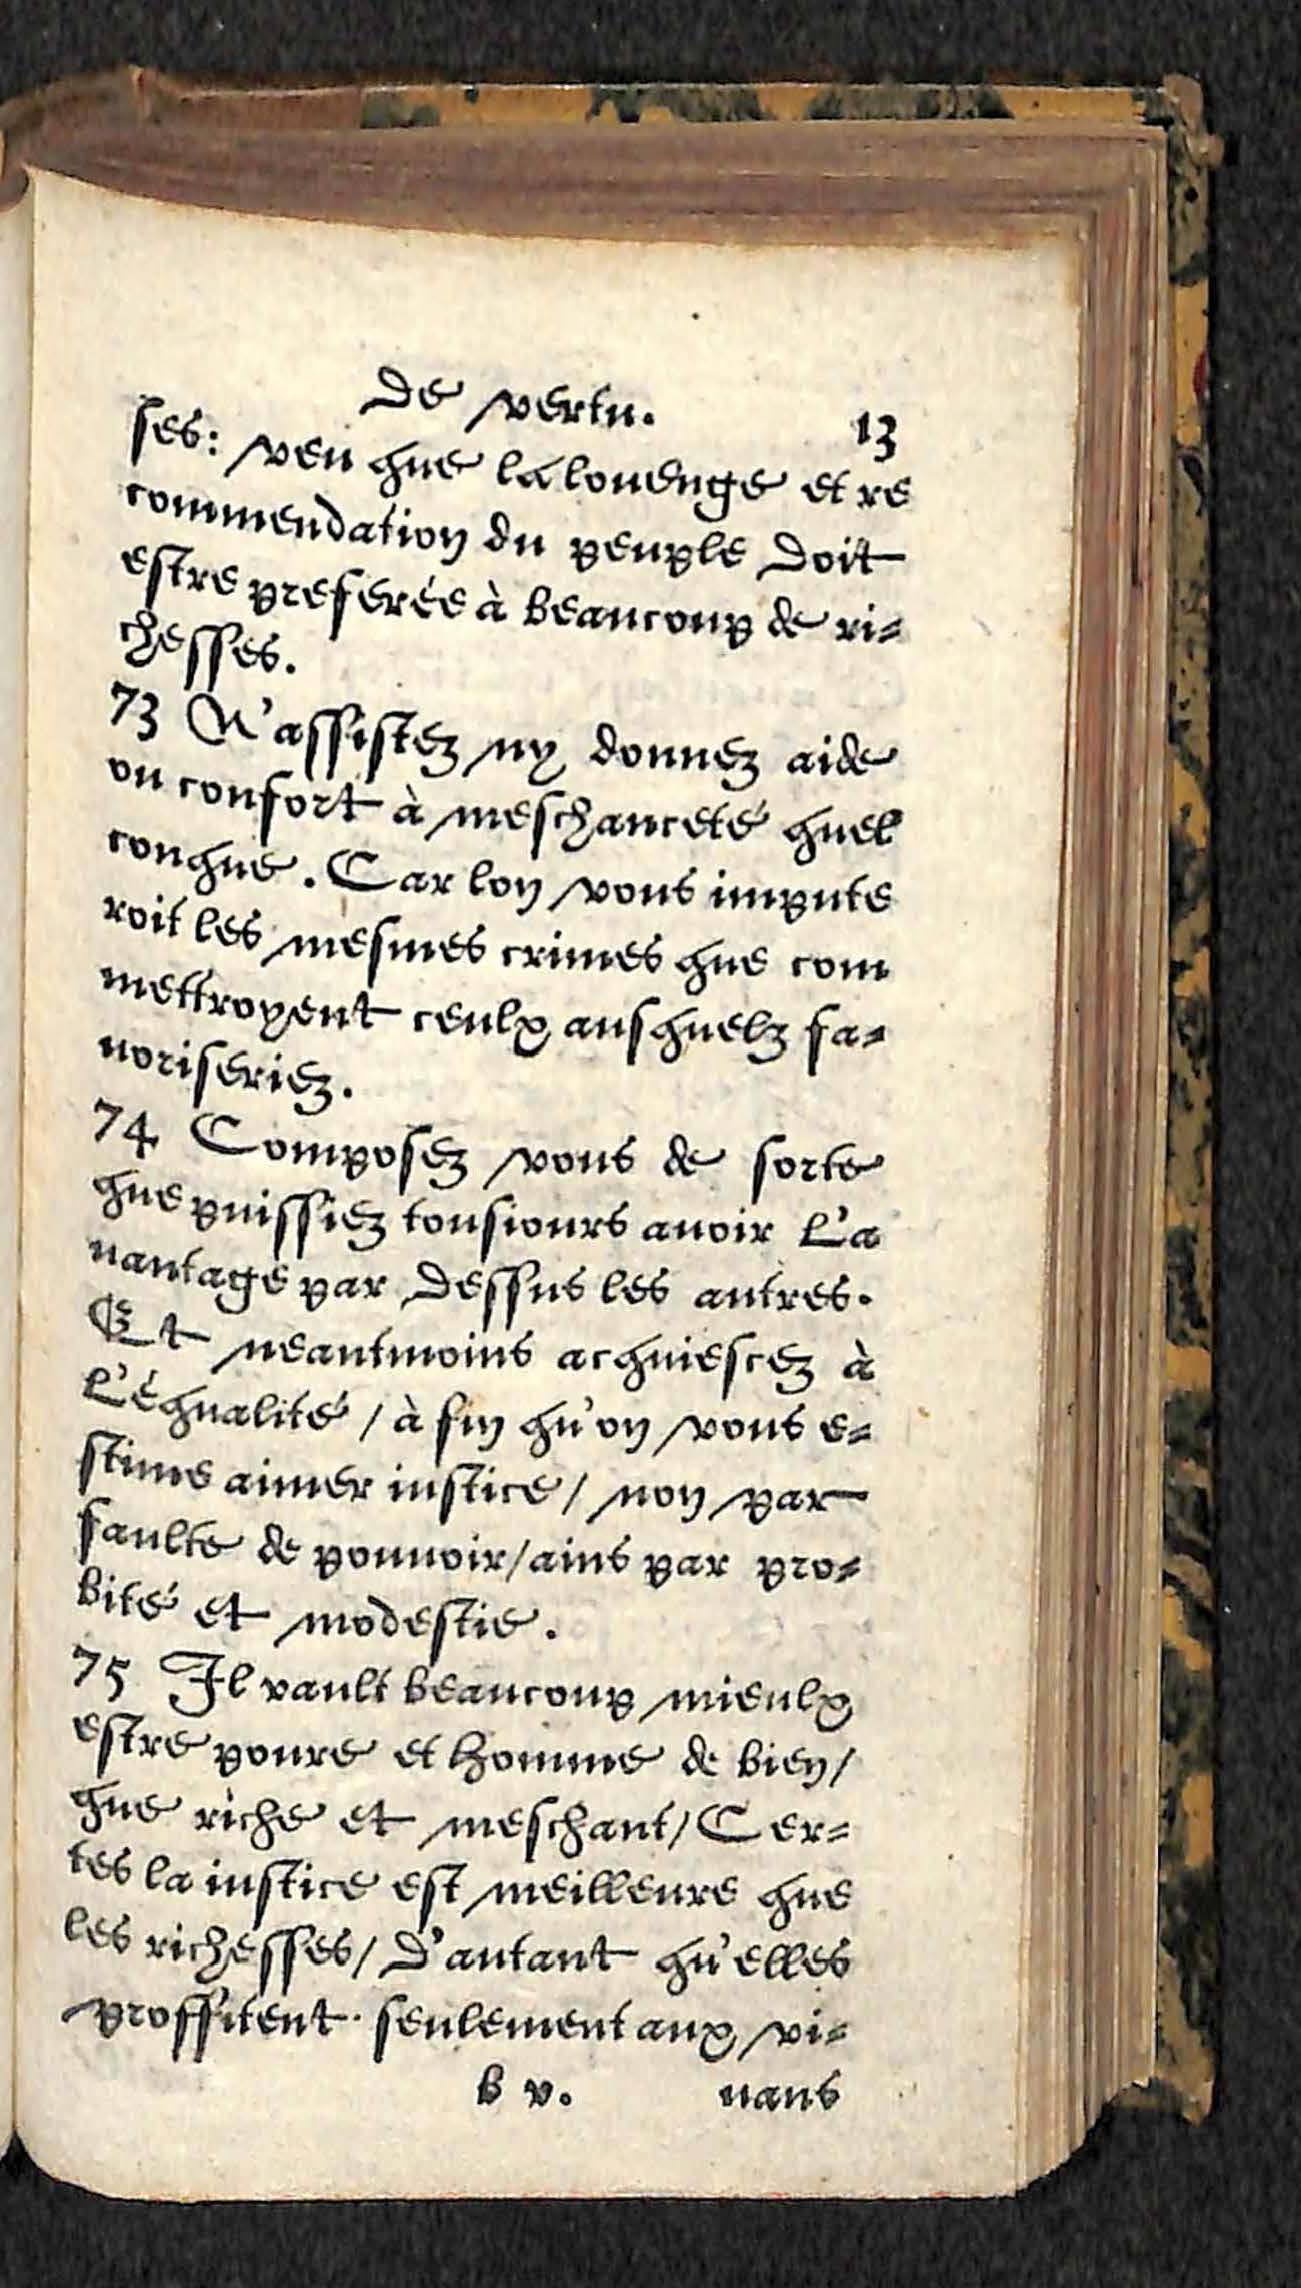 De vertu. 13
ses: veu que la louenge et re
commendation du peuple doit
estre preferée à beaucoup de ri=
chesses.
73 N'assistez ny donnez aide
ou confort à meschanceté quel
conque. Car lon vous impute
roit les mesmes crimes que com
mettroyent ceulx ausquelz fa=
uoriseriez.
74 Composez vous de sorte
que puissiez tousiours auoir l'a
uantage par dessus les autres.
Et neantmoins acquiescez à
l'équalité / à fin qu'on vous e=
stime aimer iustice / non par
faulte de pouuoir / ains par pro=
bité et modestie.
75 Il vault beaucoup mieulx
estre poure et homme de bien /
que riche et meschant / Cer=
tes la iustice est meilleure que
les richesses / d'autant qu'elles
proffitent seulement aux vi=
b v. uans